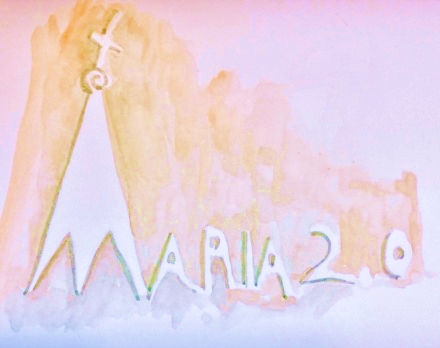 MARIA 2.0